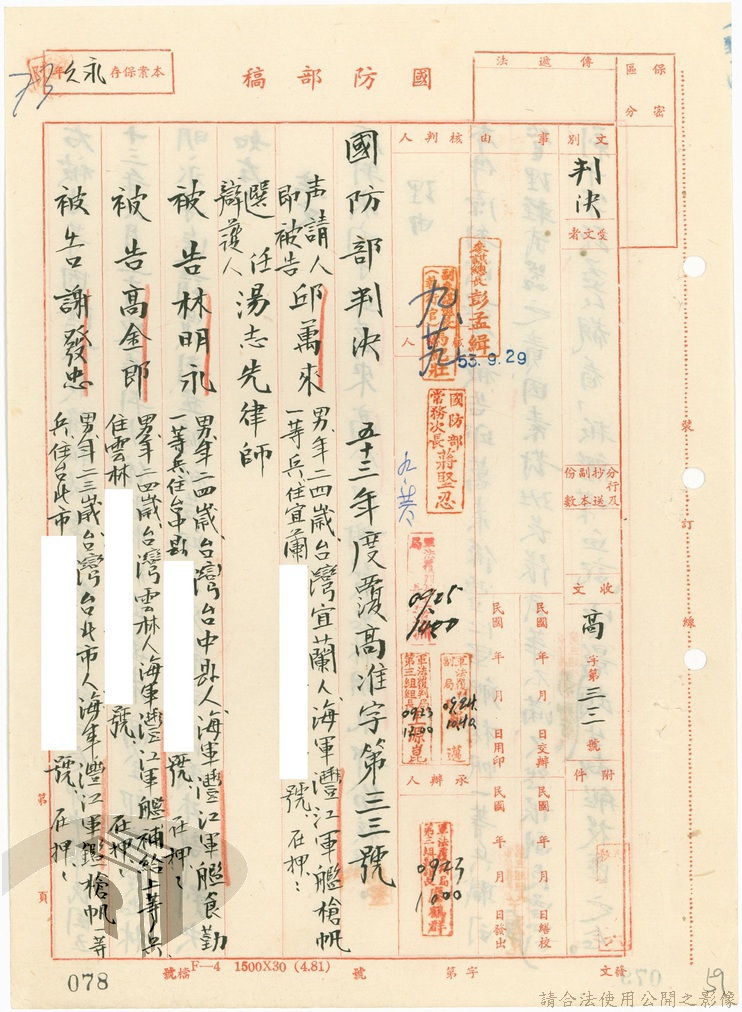 國防部稿
本案保存年
永久
保密
區分
傳遞法
文別
判決
事由
核判人
受文者
參謀總長彭孟緝
九、廿九
53.9.29
國防部
常務次長蔣堅忍
分行及
抄送
副本
份數
收文
高字第三三號
附件
民國 年 月 日交辦
民國 年 月 日用印
民國 年 月 日繕校
民國 年 月 日發出
承辦人
0925
0924
1040
0923
1700
0923
1600
國防部判決 五十三年度覆高准字第三三號
声請人
即被告
邱萬來 男、年二四歲、台灣宜蘭人、海軍灃江軍艦槍帆
一等兵、住宜蘭 號、在押、
選任
辯護人
湯志先律師
被告林明永 男、年二四歲、台灣台中縣人、海軍灃江軍艦食勤
一等兵、住台中縣 號、在押、
被告高金郎 男、年二四歲、台灣雲林人、海軍灃江軍艦補給上等兵、
住雲林 號、在押、
被告謝發忠 男、年二三歲、台灣台北市人、海軍灃江軍艦槍帆一等
兵、住台北市 號、在押、
第 頁
號訂線
078
檔號
F—4 1500X30 (4.81)
發文 字第 號
59
請合法使用公開之影像